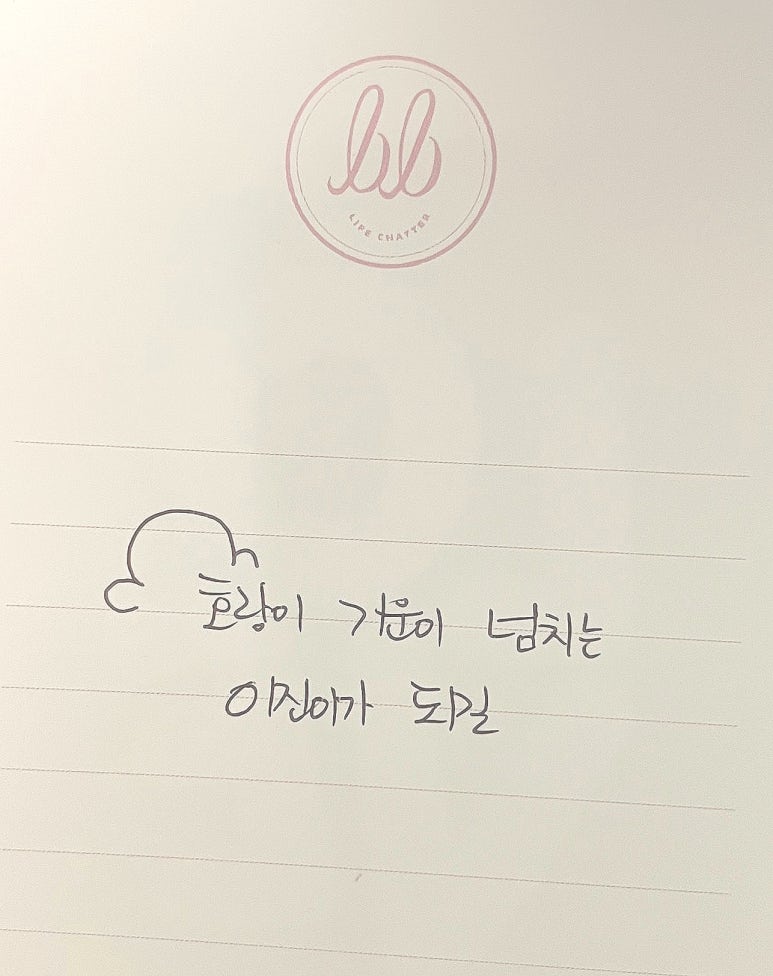 bb
LIFE CHATTER
호랑이 기운이 넘치는
이진아가 되길